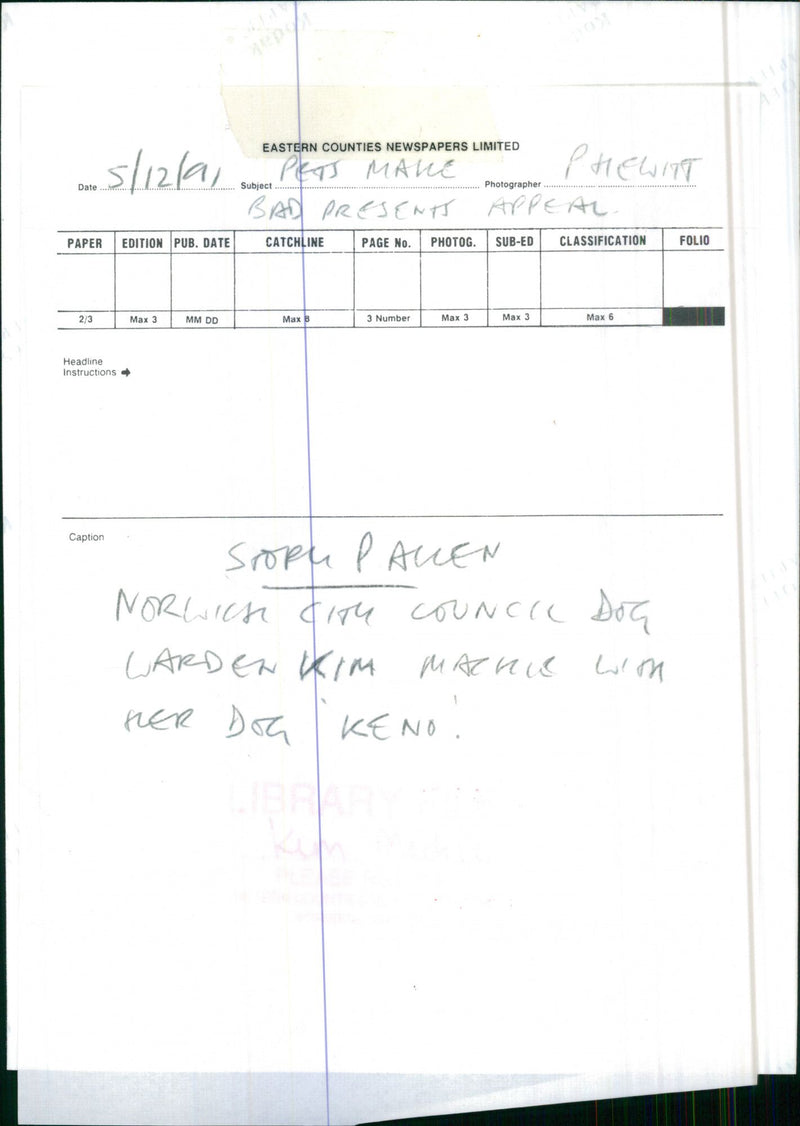 EASTERN COUNTIES NEWSPAPERS LIMITED
Date 5/12/91 Subject PETS MAKE Photographer P HEWITT
BAD PRESENTS APPEAL.
PAPER EDITION PUB. DATE CATCHLINE PAGE No. PHOTOG. SUB-ED CLASSIFICATION FOLIO
2/3 Max 3 MM DD Max 8 3 Number Max 3 Max 3 Max 6
Headline
Instructions
Caption
STORY P ALLEN
NORWICH CITY COUNCIL DOG
WARDEN KIM MACKIE WITH
HER DOG 'KENO'.
LIBRARY FILE
Kim
PLEASE